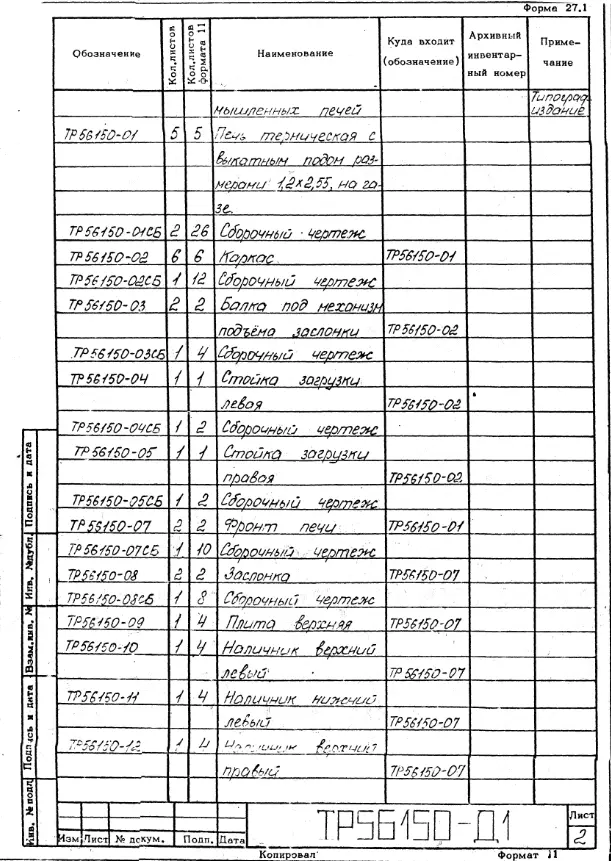 Форма 27.1
Обозначение Кол.листов Кол.листов формата 11 Наименование Куда входит (обозначение) Архивный инвентар-ный номер Приме-чание
мышленных печей Типограф. издание
ТР56150-01 5 5 Печь термическая с
выкатным подом раз-
мерами 1,2×2,55, на га-
зе.
ТР56150-01СБ 2 26 Сборочный чертеж
ТР56150-02 6 6 Каркас ТР56150-01
ТР56150-02СБ 1 12 Сборочный чертеж
ТР56150-03 2 2 Балка под механизм
подъёма заслонки ТР56150-02
ТР56150-03СБ 1 4 Сборочный чертеж
ТР56150-04 1 1 Стойка загрузки
левая ТР56150-02
ТР56150-04СБ 1 2 Сборочный чертеж
ТР56150-05 1 1 Стойка загрузки
правая ТР56150-02
ТР56150-05СБ 1 2 Сборочный чертеж
ТР56150-07 2 2 Фронт печи ТР56150-01
ТР56150-07СБ 1 10 Сборочный чертеж
ТР56150-08 2 2 Заслонка ТР56150-07
ТР56150-08СБ 1 8 Сборочный чертеж
ТР56150-09 1 4 Плита верхняя ТР56150-07
ТР56150-10 1 4 Наличник верхний
левый ТР56150-07
ТР56150-11 1 4 Наличник нижний
левый ТР56150-07
ТР56150-12 1 4 Наличник верхний
правый ТР56150-07
Инв. № подл. Подпись и дата Взам.инв. № Инв. №дубл. Подпись и дата
ТР56150-Д1 Лист
2
Изм Лист № докум. Подп. Дата
Копировал Формат 11